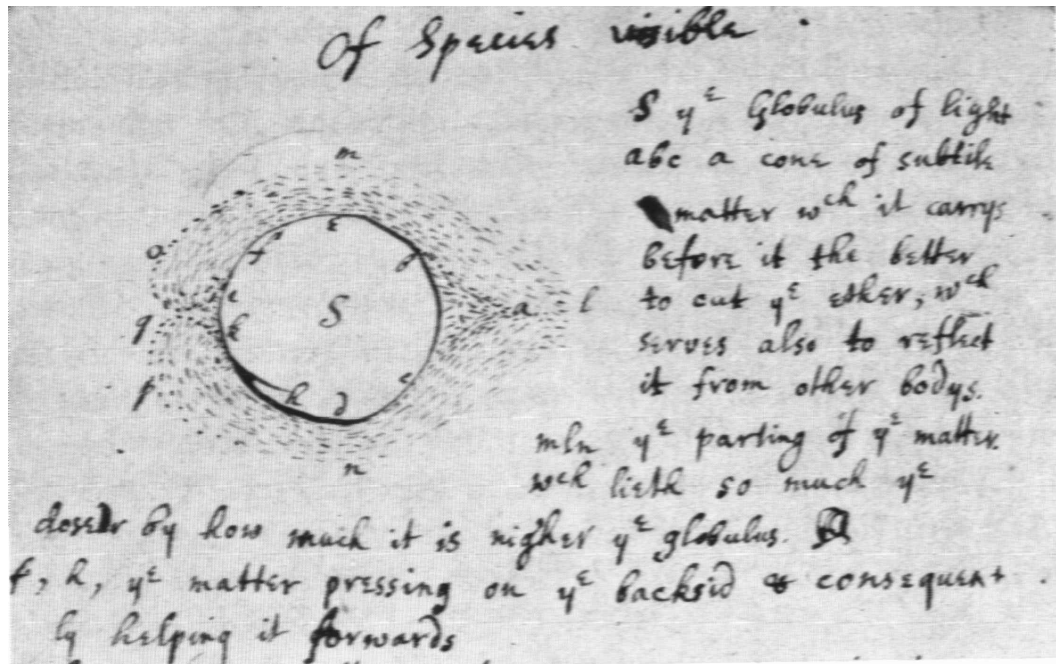 Of Species visible.
S yᵉ Globulus of light
abc a cone of subtile
matter wᶜʰ it carrys
before it the better
to cut yᵉ ether, wᶜʰ
serves also to reflect
it from other bodys.
mln yᵉ parting of yᵉ matter.
wᶜʰ lieth so much yᵉ
closer by how much it is nigher yᵉ globulus.
f, h, yᵉ matter pressing on yᵉ backsid & consequent
ly helping it forwards
m
o
e
f
g
i
k
S
a
l
q
p
h
d
c
n